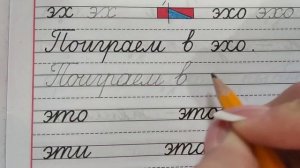 эх эх эхо эхо
Поиграем в эхо.
Поиграем в
это это
эти это